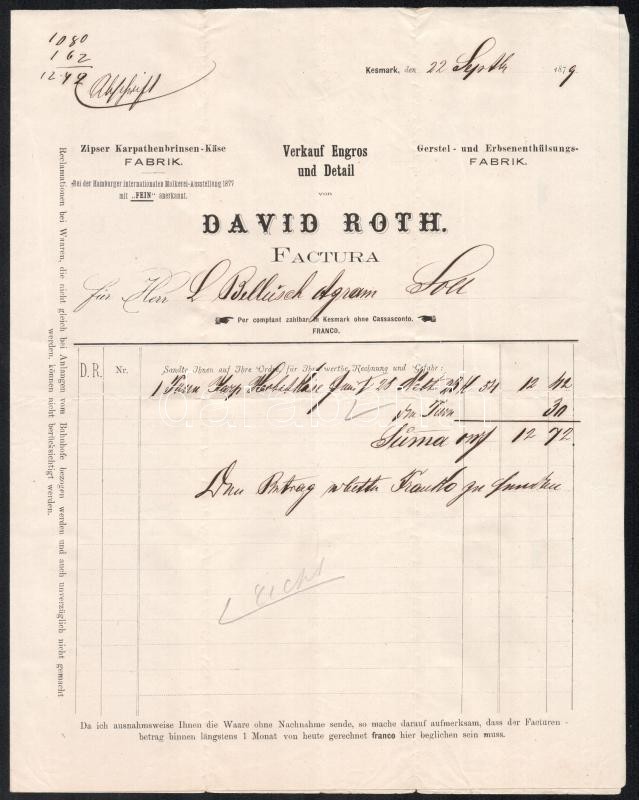 1080
162
12.42
Abschrift
Kesmark, den 22 Septb 1879.
Zipser Karpathenbrinsen-Käse
FABRIK.
Bei der Hamburger internationalen Molkerei-Ausstellung 1877
mit „FEIN" anerkannt.
Verkauf Engros
und Detail
von
Gerstel- und Erbsenenthülsungs-
FABRIK.
DAVID ROTH.
FACTURA
für Herr L Bellusch Agram Soll
Per comptant zahlbar in Kesmark ohne Cassasconto.
FRANCO.
D.R. Nr. Sandte Ihnen auf Ihre Ordre, für Ihre werthe Rechnung und Gefahr:
1 Karp 23 54 12 42
30
Suma 12 72
Den Betrag bitte Franko zu senden
Reclamationen bei Waaren, die nicht gleich bei Anlangen vom Bahnhofe bezogen werden und auch unverzüglich nicht gemacht
werden, können nicht berücksichtigt werden.
Da ich ausnahmsweise Ihnen die Waare ohne Nachnahme sende, so mache darauf aufmerksam, dass der Facturen-
betrag binnen längstens 1 Monat von heute gerechnet franco hier beglichen sein muss.